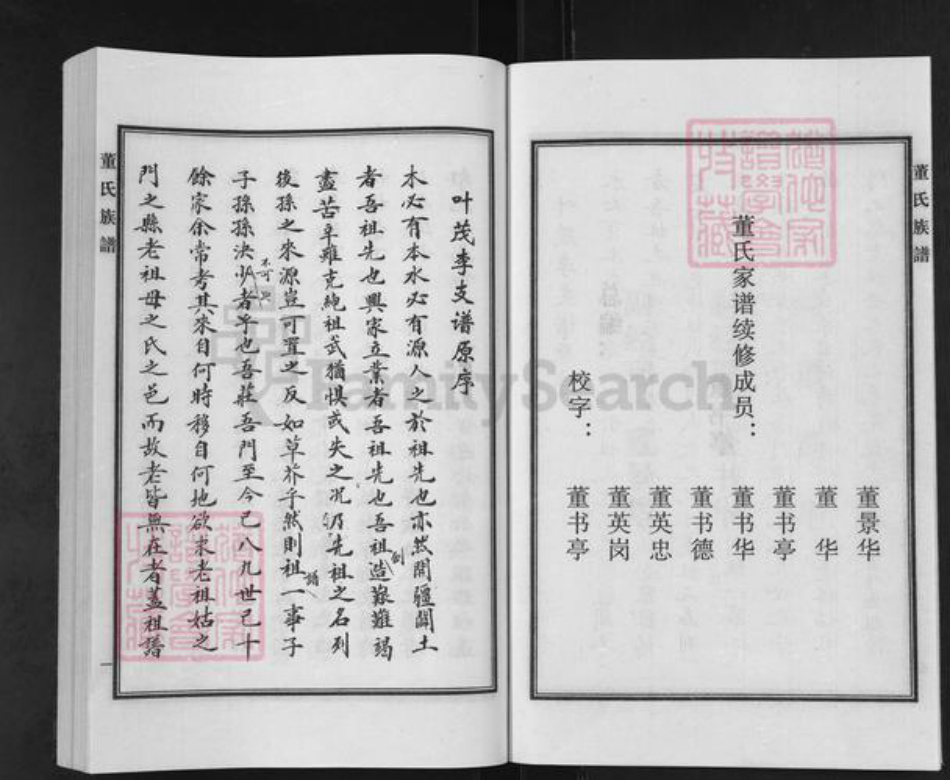 董氏族譜
董氏家谱续修成员：
董景华
董华
董书亭
董书华
董书德
董英忠
董英岗
校字：
董书亭
叶茂李支谱原序
木必有本水必有源人之於祖先也亦然開疆闢土
者吾祖先也興家立業者吾祖先也吾祖造創艱難竭
盡苦辛雖克純祖武猶惧或失之况仍先祖之名列
後孫之來源豈可置之反如草芥乎然則祖譜一事子
子孫孫決不可少者也吾莊吾門至今已八九世已十
餘家余常考其來自何時移自何地欲求老祖姑之
門之縣老祖母之氏之邑而故老皆無在者蓋祖譜
董氏族譜
一
FamilySearch